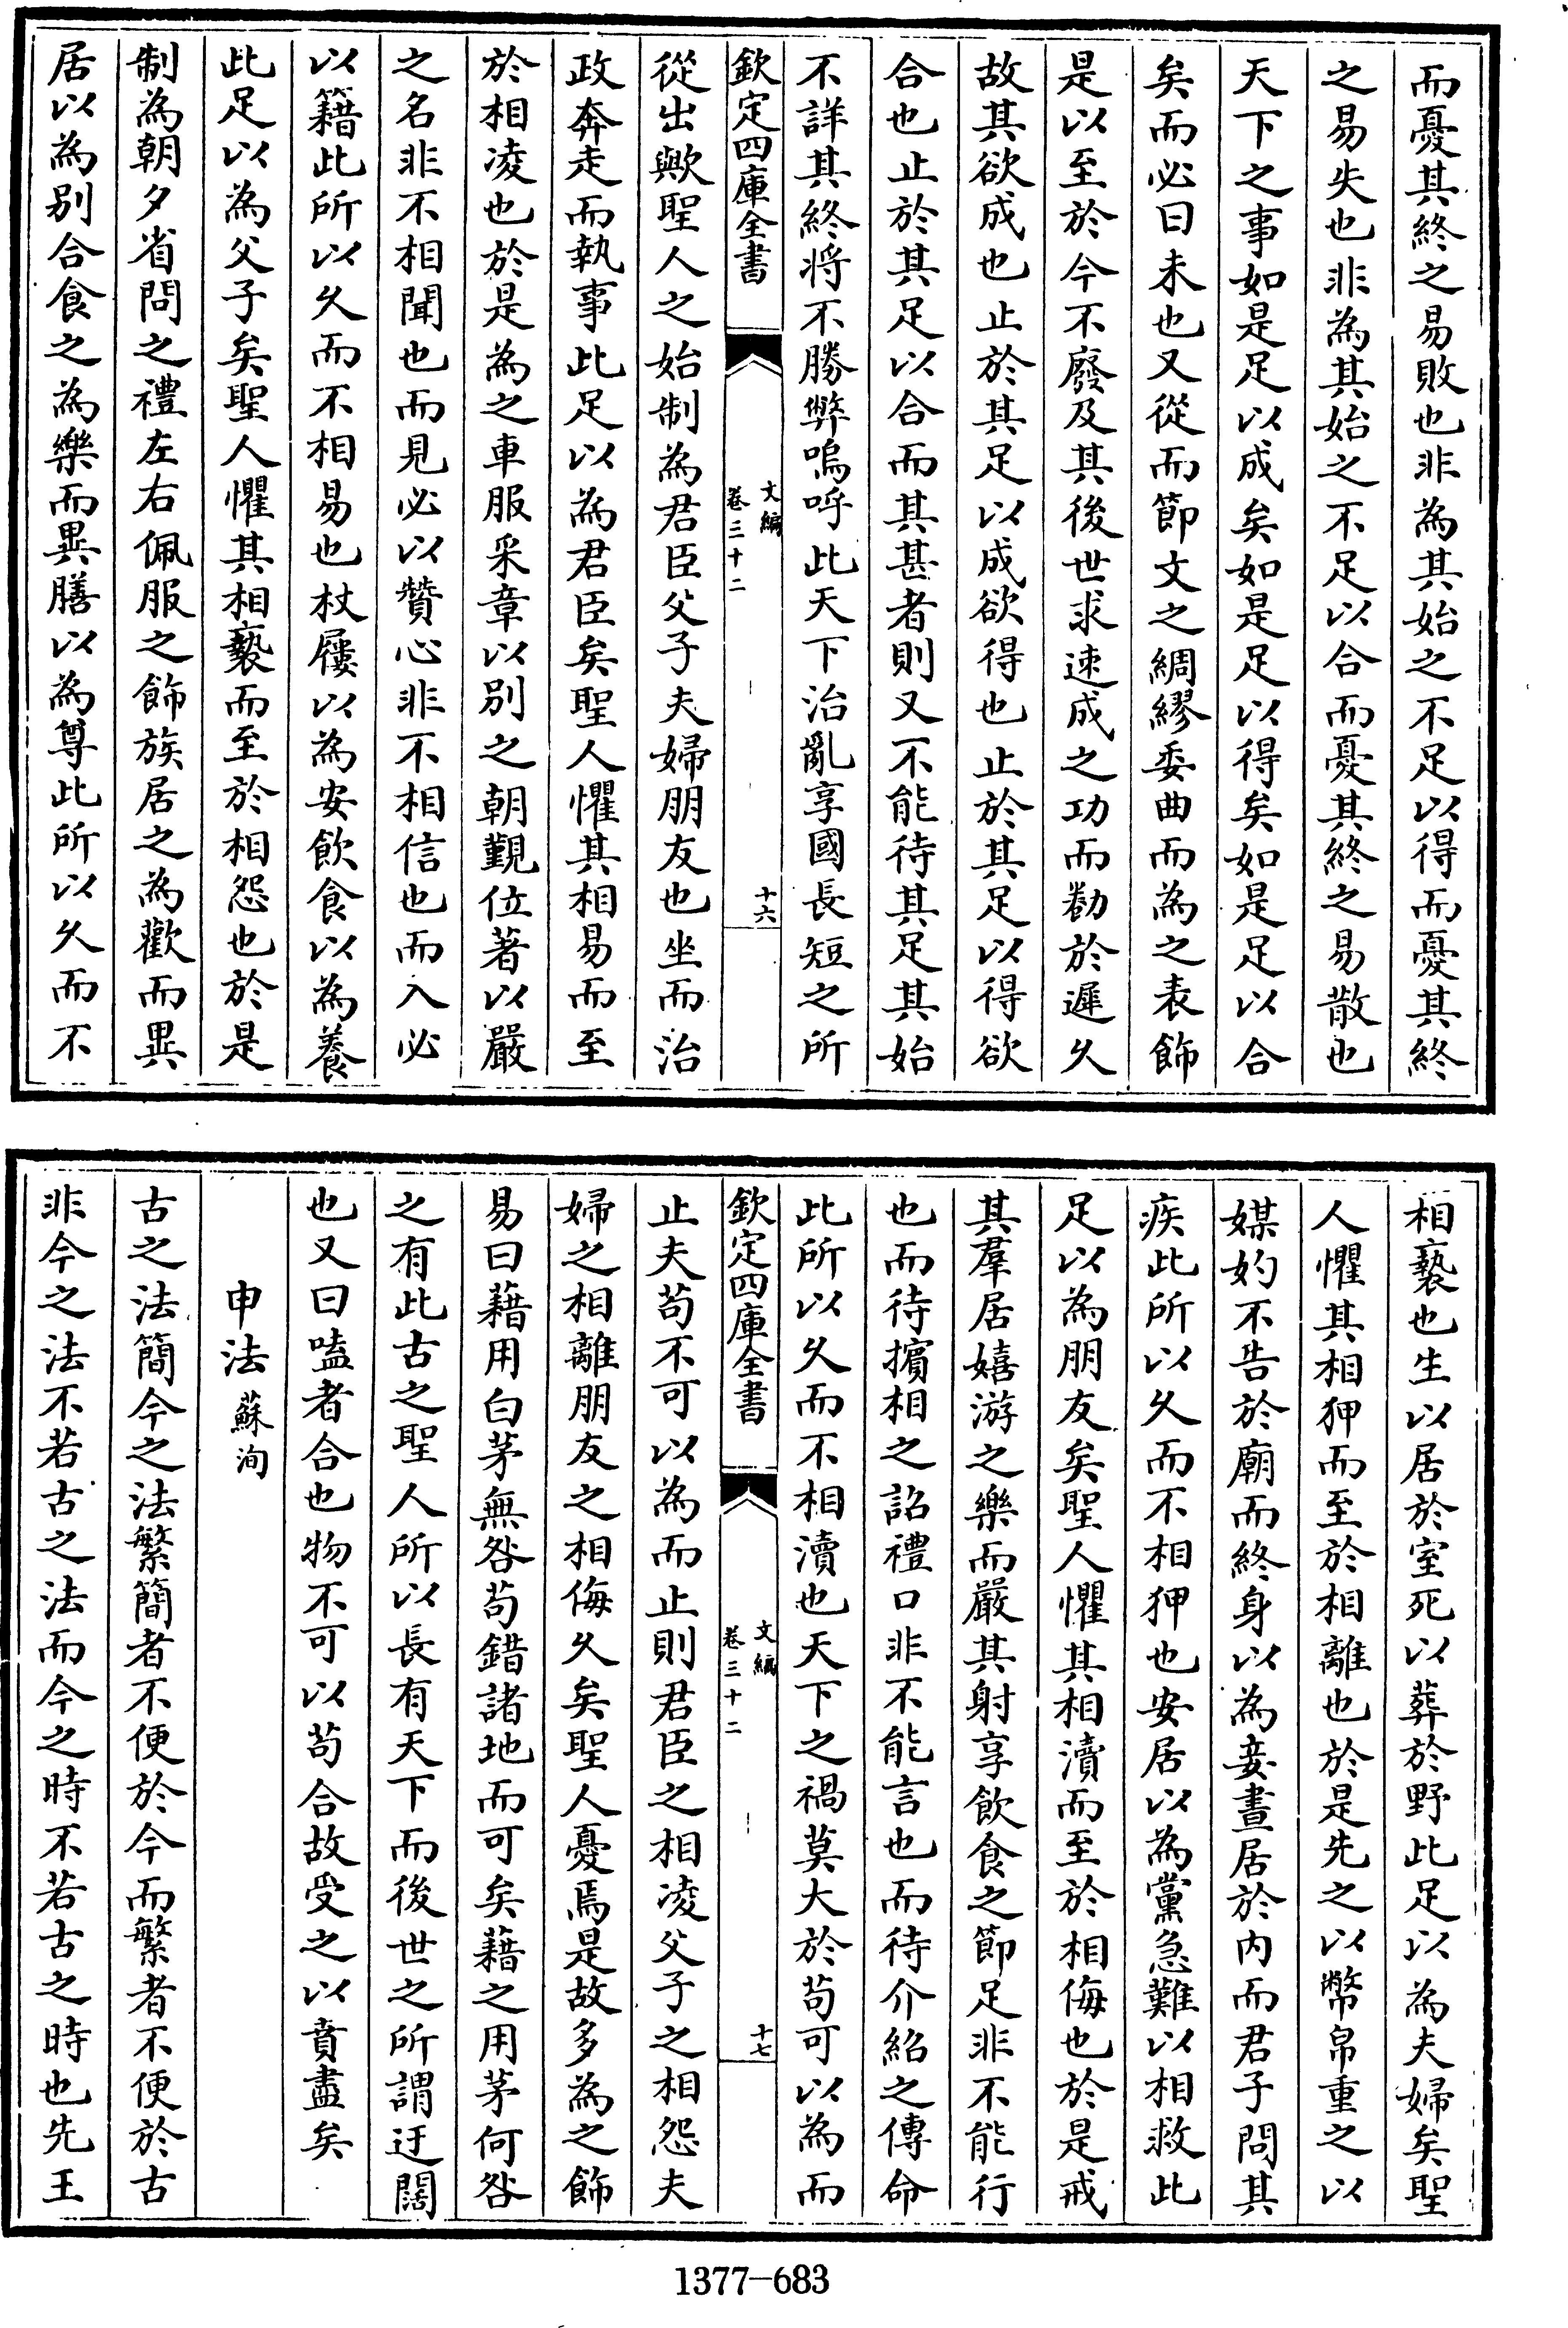 而憂其終之易敗也非為其始之不足以得而憂其終
之易失也非為其始之不足以合而憂其終之易散也
天下之事如是足以成矣如是足以得矣如是足以合
矣而必曰未也又從而節文之綢繆委曲而為之表飾
是以至於今不廢及其後世求速成之功而勌於遲久
故其欲成也止於其足以成欲得也止於其足以得欲
合也止於其足以合而其甚者則又不能待其足其始
不詳其終將不勝弊嗚呼此天下治亂享國長短之所
欽定四庫全書
文編
卷三十二
十六
從出歟聖人之始制為君臣父子夫婦朋友也坐而治
政奔走而執事此足以為君臣矣聖人懼其相易而至
於相凌也於是為之車服采章以別之朝覲位著以嚴
之名非不相聞也而見必以贊心非不相信也而入必
以籍此所以久而不相易也杖屨以為安飲食以為養
此足以為父子矣聖人懼其相褻而至於相怨也於是
制為朝夕省問之禮左右佩服之飾族居之為歡而異
居以為別合食之為樂而異膳以為尊此所以久而不
相褻也生以居於室死以葬於野此足以為夫婦矣聖
人懼其相狎而至於相離也於是先之以幣帛重之以
媒妁不告於廟而終身以為妾晝居於內而君子問其
疾此所以久而不相狎也安居以為黨急難以相救此
足以為朋友矣聖人懼其相瀆而至於相侮也於是戒
其羣居嬉游之樂而嚴其射享飲食之節足非不能行
也而待擯相之詔禮口非不能言也而待介紹之傳命
此所以久而不相瀆也天下之禍莫大於苟可以為而
欽定四庫全書
文編
卷三十二
十七
止夫苟不可以為而止則君臣之相凌父子之相怨夫
婦之相離朋友之相侮久矣聖人憂焉是故多為之飾
易曰藉用白茅無咎苟錯諸地而可矣藉之用茅何咎
之有此古之聖人所以長有天下而後世之所謂迂闊
也又曰嗑者合也物不可以苟合故受之以賁盡矣
申法 蘇洵
古之法簡今之法繁簡者不便於今而繁者不便於古
非今之法不若古之法而今之時不若古之時也先王
1377-683